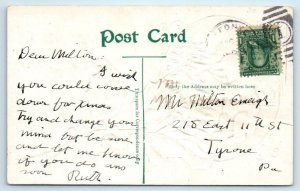 Post Card
Dear Milton:
I wish
you could come
down for Xmas
Try and change your
mind but be sure
and let me know
if you do any
soon Ruth.
the Address may be written here
Mr Milton
218 East 11th St
Tyrone
Pa